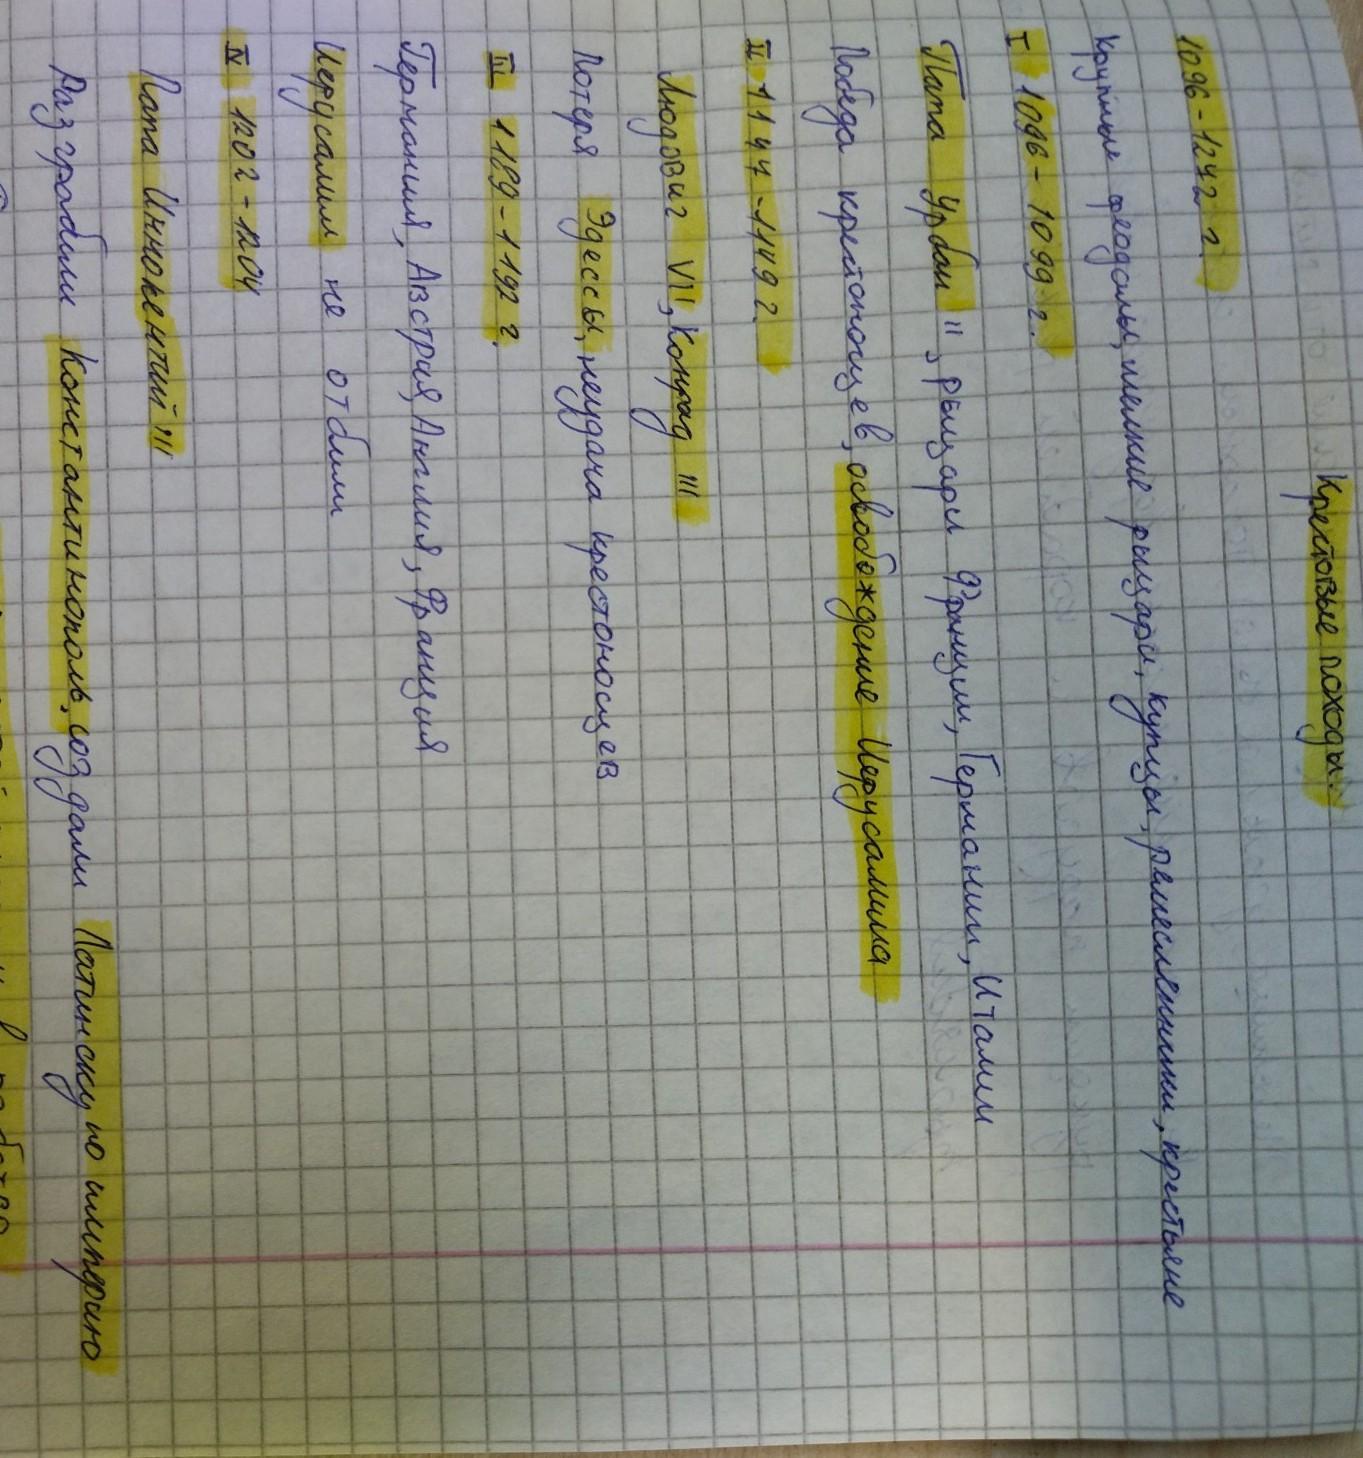 Крестовые походы.
1096-1242 г.
Крупные феодалы, мелкие рыцари, купцы, ремесленники, крестьяне
I 1096-1099 г.
Папа Урбан II, рыцари Франции, Германии, Италии
Победа крестоносцев, освобождение Иерусалима
II 1147-1149 г.
Людовиг VII, Конрад III
Потеря Эдессы, неудача крестоносцев
III 1189-1192 г.
Германия, Австрия, Англия, Франция
Иерусалим не отбили
IV 1202-1204
Папа Иннокентий III
Разграбили Константинополь, создали Латинскую империю